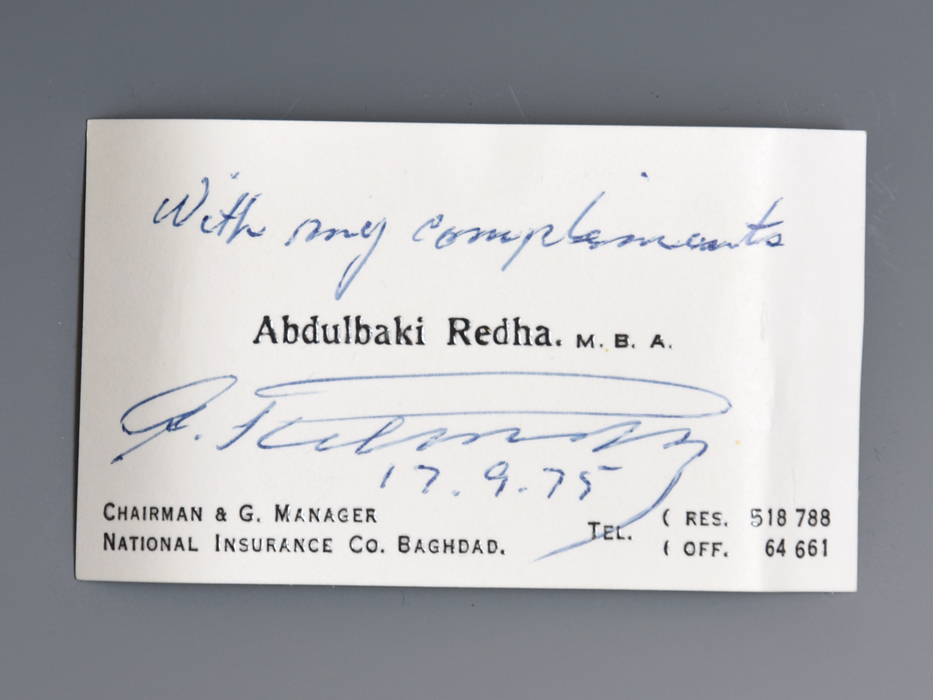 With my compliments
Abdulbaki Redha. M. B. A.
17.9.75
CHAIRMAN & G. MANAGER
NATIONAL INSURANCE CO. BAGHDAD.
TEL. ( RES. 518 788
( OFF. 64 661